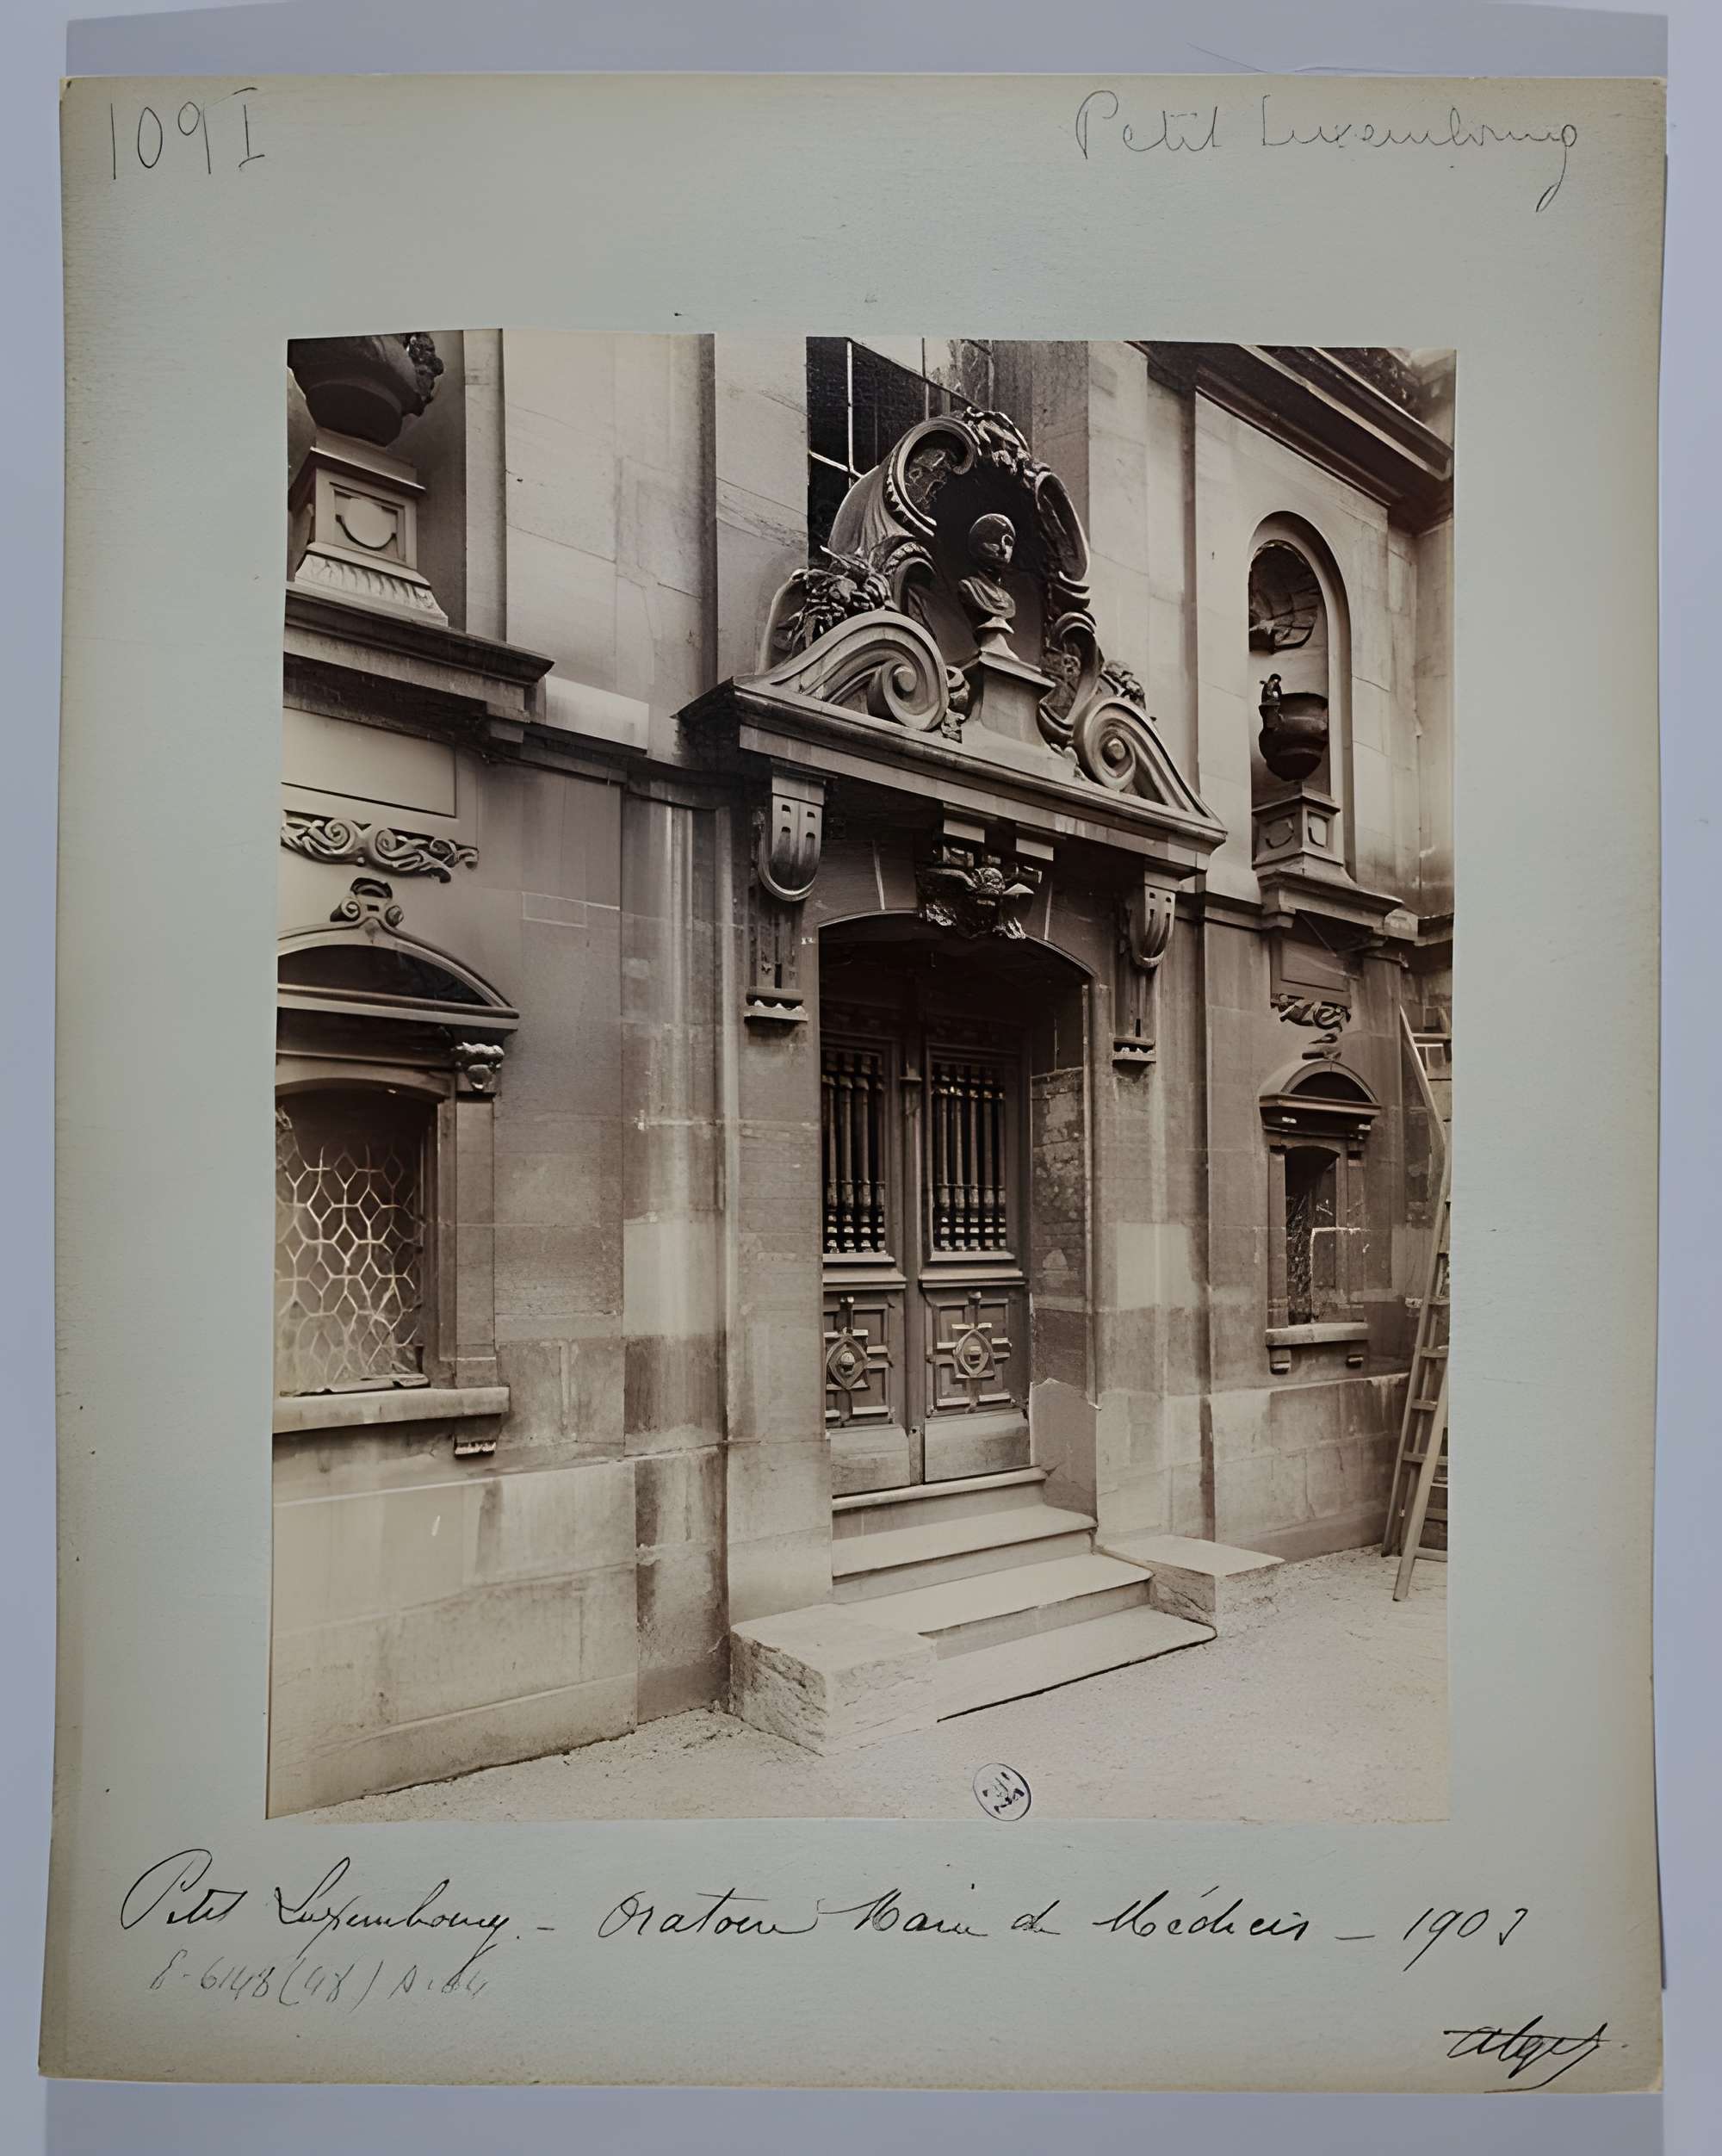 109I
Petit Luxembourg
Petit Luxembourg. - Oratoire Marie de Médicis - 1903
Atget